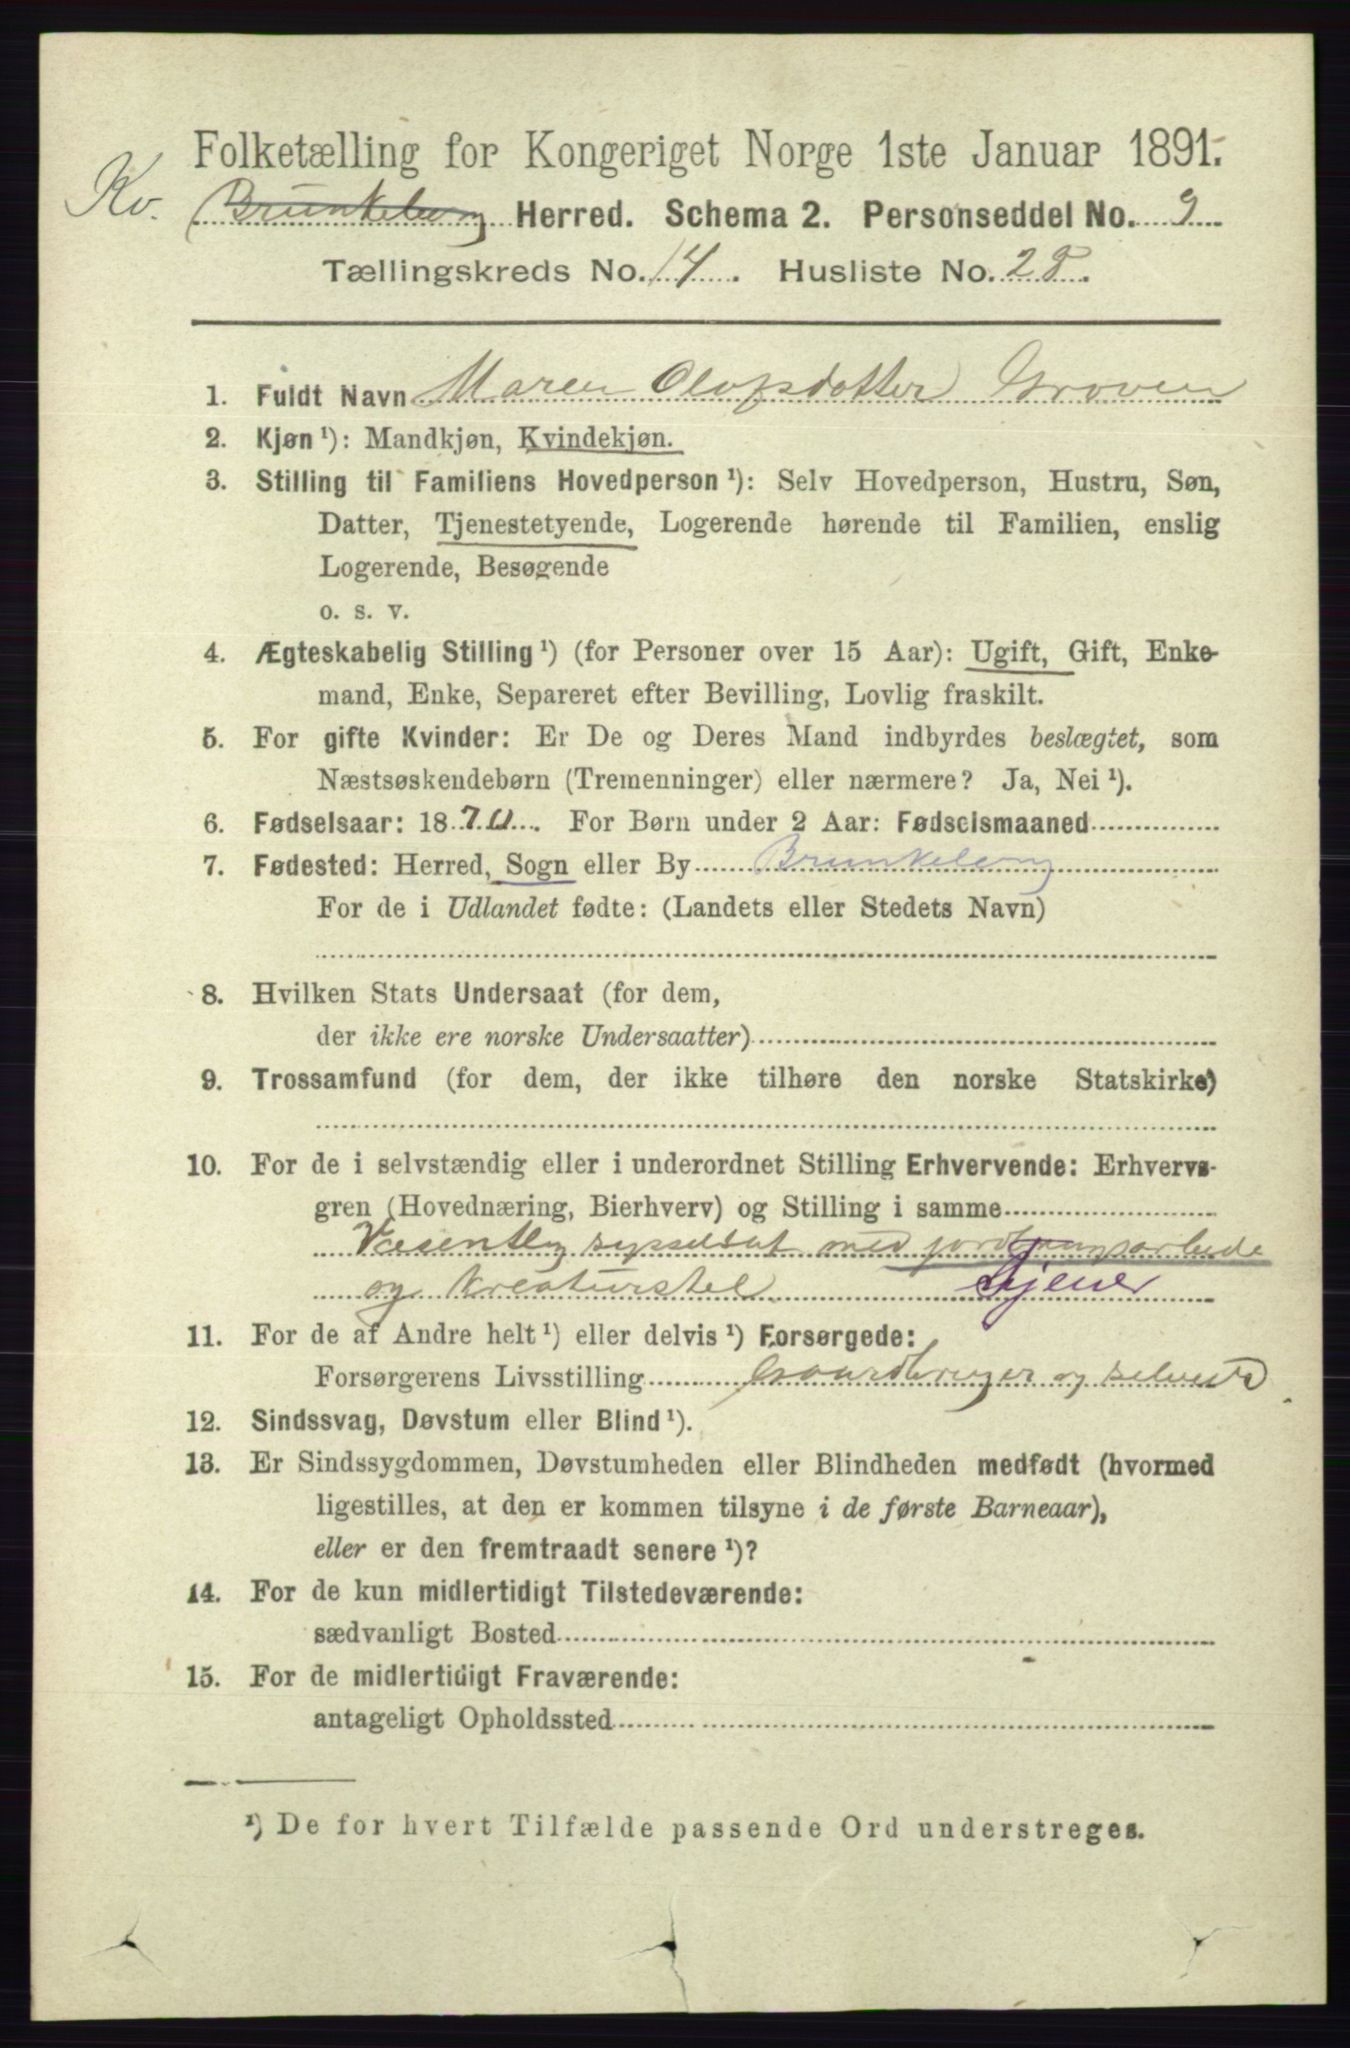 Folketælling for Kongeriget Norge 1ste Januar 1891.
Kv. Brunkeberg Herred. Schema 2. Personseddel No. 9
Tællingskreds No. 14. Husliste No. 28.
1. Fuldt Navn Maren Olofsdotter Groven
2. Kjøn ¹): Mandkjøn, Kvindekjøn.
3. Stilling til Familiens Hovedperson ¹): Selv Hovedperson, Hustru, Søn,
Datter, Tjenestetyende, Logerende hørende til Familien, enslig
Logerende, Besøgende
o. s. v.
4. Ægteskabelig Stilling ¹) (for Personer over 15 Aar): Ugift, Gift, Enke-
mand, Enke, Separeret efter Bevilling, Lovlig fraskilt.
5. For gifte Kvinder: Er De og Deres Mand indbyrdes beslægtet, som
Næstsøskendebørn (Tremenninger) eller nærmere? Ja, Nei ¹).
6. Fødselsaar: 1870. For Børn under 2 Aar: Fødselsmaaned
7. Fødested: Herred, Sogn eller By Brunkeberg
For de i Udlandet fødte: (Landets eller Stedets Navn)
8. Hvilken Stats Undersaat (for dem,
der ikke ere norske Undersaatter)
9. Trossamfund (for dem, der ikke tilhøre den norske Statskirke)
10. For de i selvstændig eller i underordnet Stilling Erhvervende: Erhvervs-
gren (Hovednæring, Bierhverv) og Stilling i samme
Væsentlig sysselsat med jordbrugsarbeide
og kreaturstel. Tjener
11. For de af Andre helt ¹) eller delvis ¹) Forsørgede:
Forsørgerens Livsstilling Gaardbruger og selveier
12. Sindssvag, Døvstum eller Blind ¹).
13. Er Sindssygdommen, Døvstumheden eller Blindheden medfødt (hvormed
ligestilles, at den er kommen tilsyne i de første Barneaar),
eller er den fremtraadt senere ¹)?
14. For de kun midlertidigt Tilstedeværende:
sædvanligt Bosted
15. For de midlertidigt Fraværende:
antageligt Opholdssted
¹) De for hvert Tilfælde passende Ord understreges.